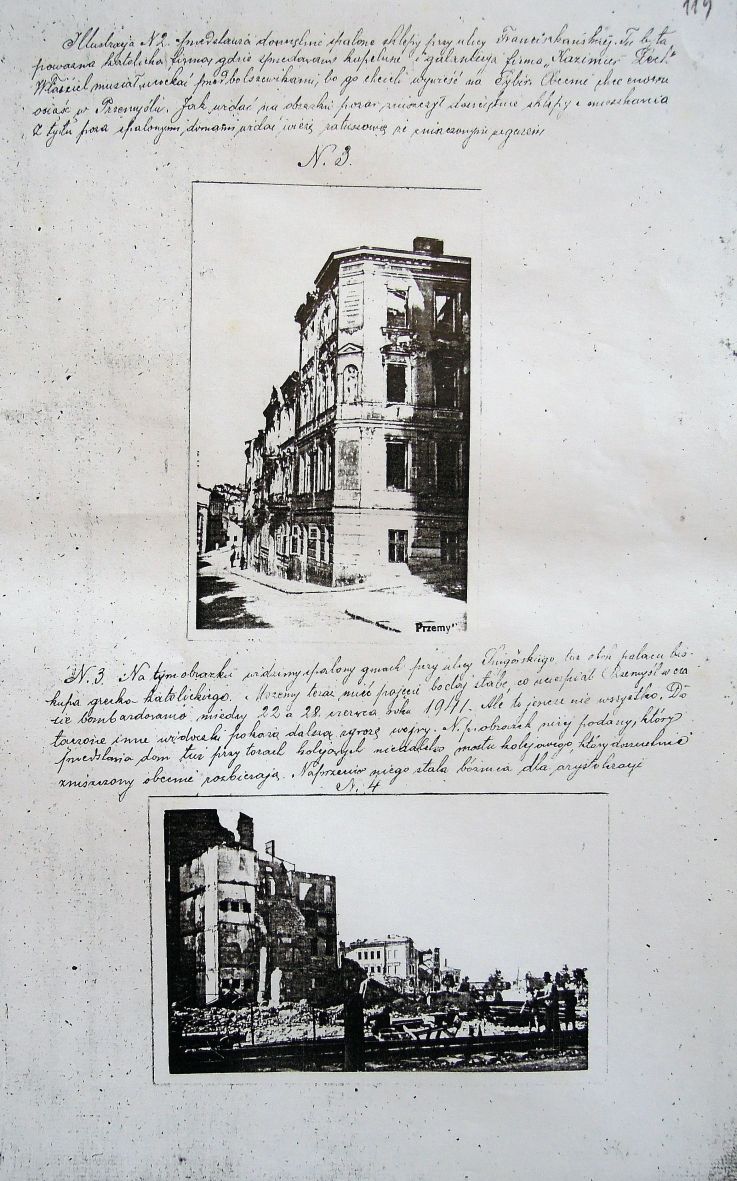 119
Illustracja N 2. przedstawia doszczętnie spalone sklepy przy ulicy Franciszkańskiej. Tu była
poważna katolicka firma, gdzie sprzedawano kapelusze i galanterję firma, Kazimierz
Właściciel musiał uciekać przed bolszewikami, bo go chcieli wywieść na Sybir. Obecnie chce znowu
osiąść w Przemyślu. Jak widać na obrazku pożar zniszczył doszczętnie sklepy i mieszkania
Z tyłu poza spalonymi domami widać wieżę ratuszową ze zniszczonym zegarem
N. 3.
Przemy
N. 3. Na tym obrazku widzimy spalony gmach przy ulicy tuż obok pałacu bis-
kupa grecko katolickiego. Możemy teraz mieć pojęcie bodaj słabe, co ucierpiał Przemyśl w cza
sie bombardowania, między 22 a 28 czerwca roku 1941. Ale to jeszcze nie wszystko. Do
łączone inne widoczki pokażą dalszą grozę wojny. N. p. obrazek niżej podany, który
przedstawia dom tuż przy torach kolejowych niedaleko mostu kolejowego, który doszczętnie
zniszczony obecnie rozbierają. Naprzeciw niego stała bóżnica dla arystokracji
N. 4